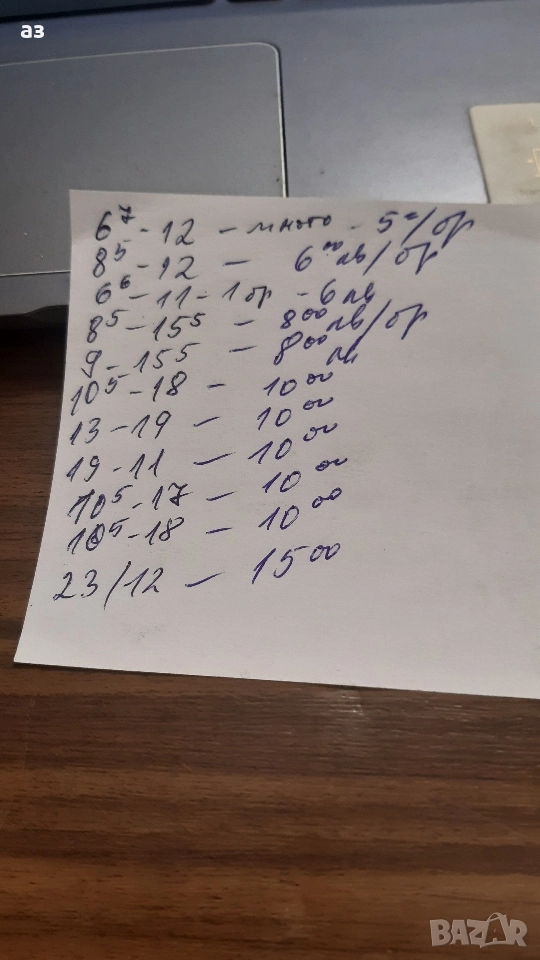 аз
6⁷-12 - много - 5⁼/бр
8⁵-12 - 6⁰⁰ лв/бр
6⁶-11-1 бр - 6 лв
8⁵-15⁵ - 8⁰⁰ лв/бр
9-155 - 8⁰⁰ лв
10⁵-18 - 10⁰⁰
13-19 - 10⁰⁰
19-11 - 10⁰⁰
10⁵-17 - 10⁰⁰
10⁵-18 - 10⁰⁰
23/12 - 15⁰⁰
BAZAR